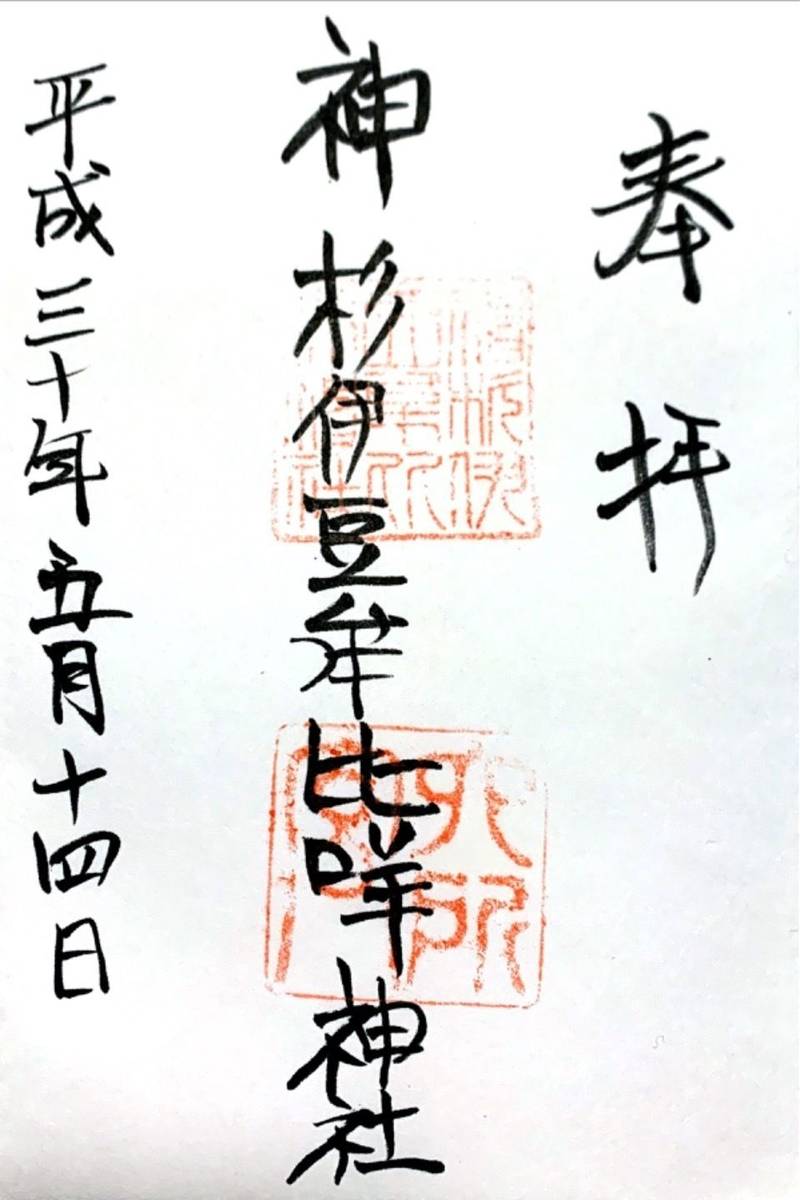 奉拝
神杉伊豆牟比咩神社
平成三十年五月十四日